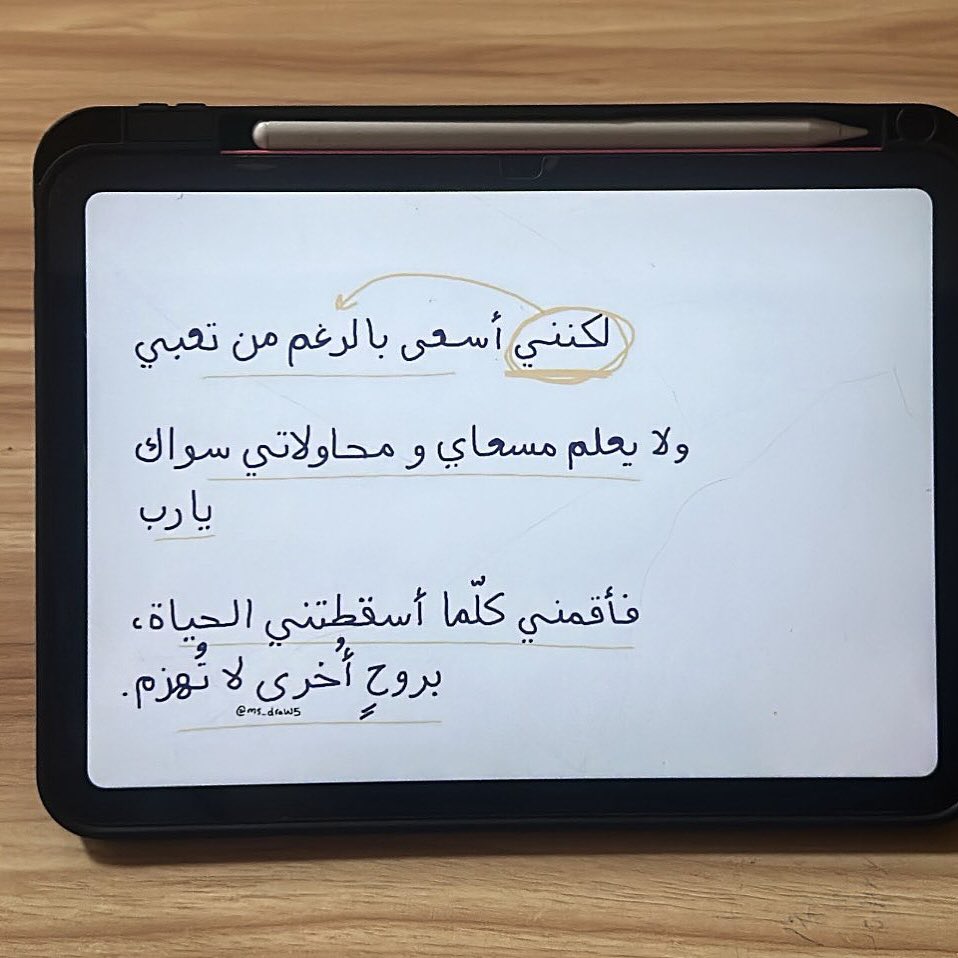 لكنني أسعى بالرغم من تعبي
ولا يعلم مسعاي و محاولاتي سواك
يارب
فأقمني كلّما أسقطتني الحياة،
بروحٍ أُخرى لا تُهزم.
@ms_draw5